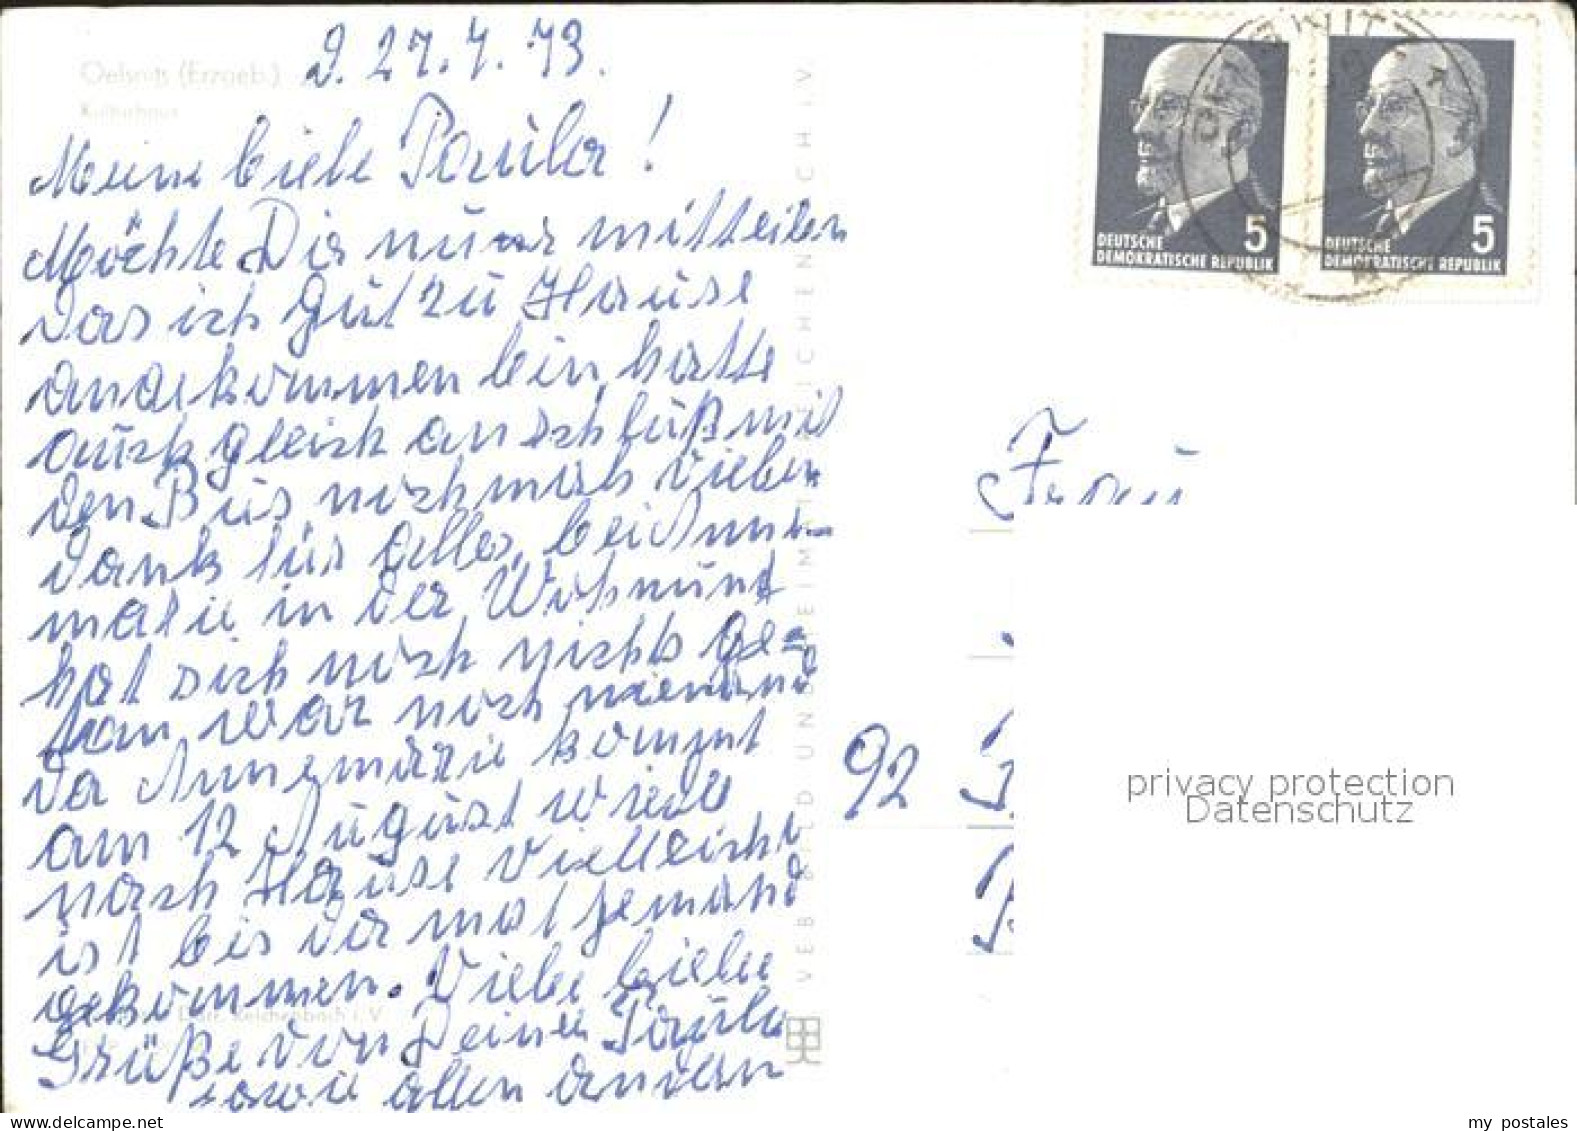 Oelsnitz (Erzgeb.)
Kulturhaus
27.7.73.
Meine liebe Paula!
Möchte Dir nur mitteilen
das ich gut zu Hause
angekommen bin, hatte
auch gleich anschluß mit
den Bus, nochmals vielen
Dank für alles, bei Anne-
marie in der Wohnung
hat sich noch nichts ge-
tan war noch niemand
da Annemarie kommt
am 12 August wieder
nach Hause vielleicht
ist bis dir mal jemand
gekommen. Viele liebe
Grüße von Deiner Paula
sowie allen andern
Reichenbach i. V.
VEB BILD UND HEIMAT REICHENBACH I. V.
DEUTSCHE
DEMOKRATISCHE REPUBLIK
5
DEUTSCHE
DEMOKRATISCHE REPUBLIK
5
Frau
92
privacy protection
Datenschutz
www.delcampe.net
my postales